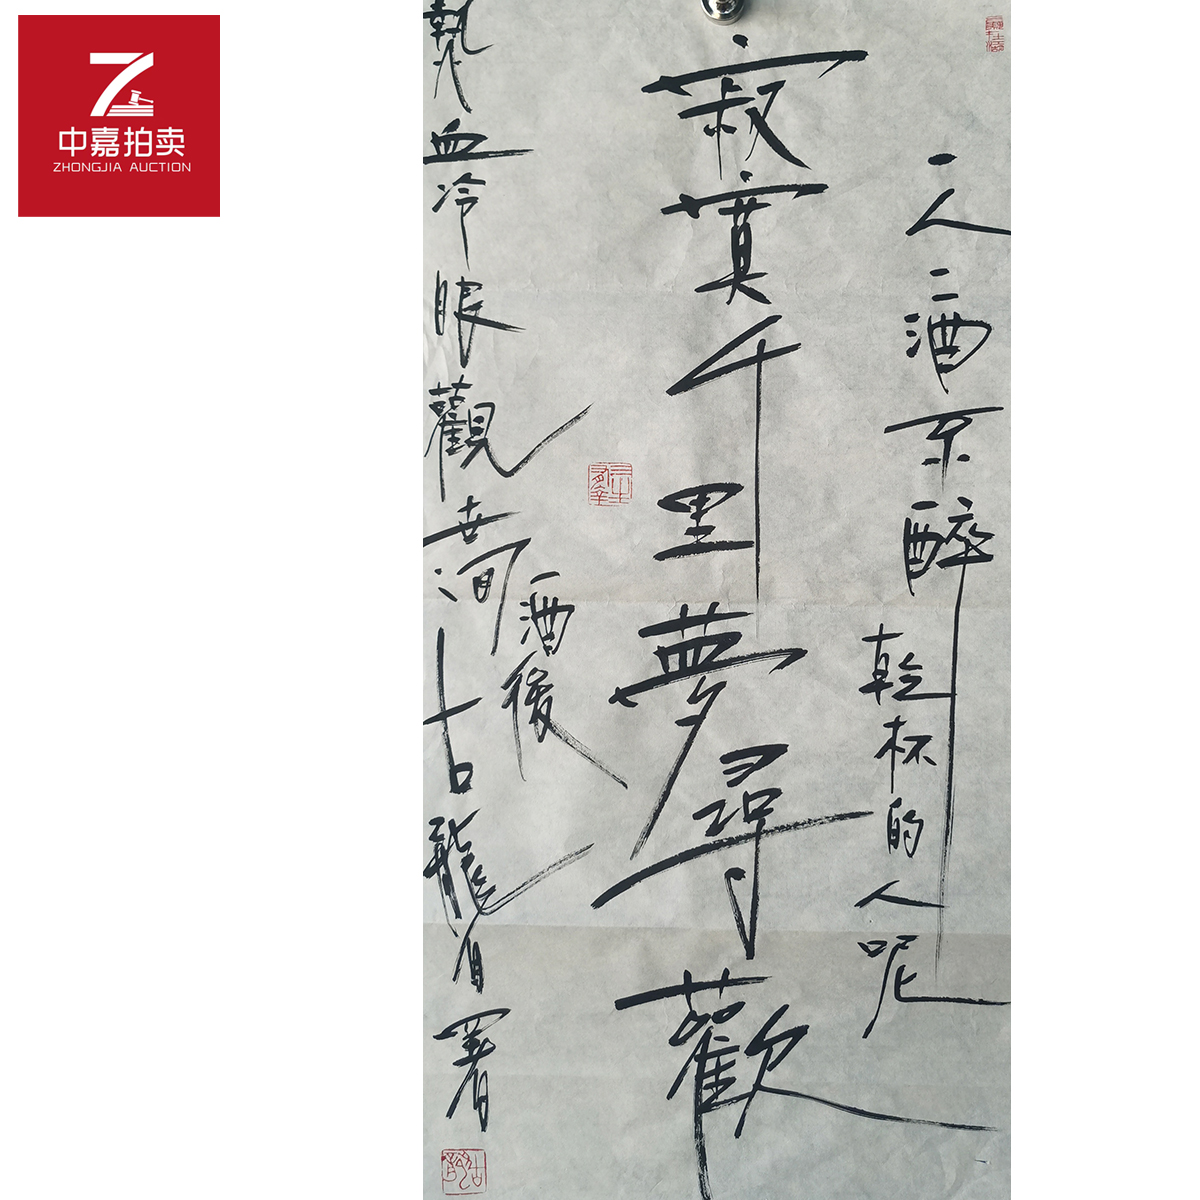 中嘉拍卖
ZHONGJIA AUCTION
一人二酒不醉
乾杯的人呢
寂寞千里夢尋歡
熱血冷眼觀世間
酒後
古龍自署